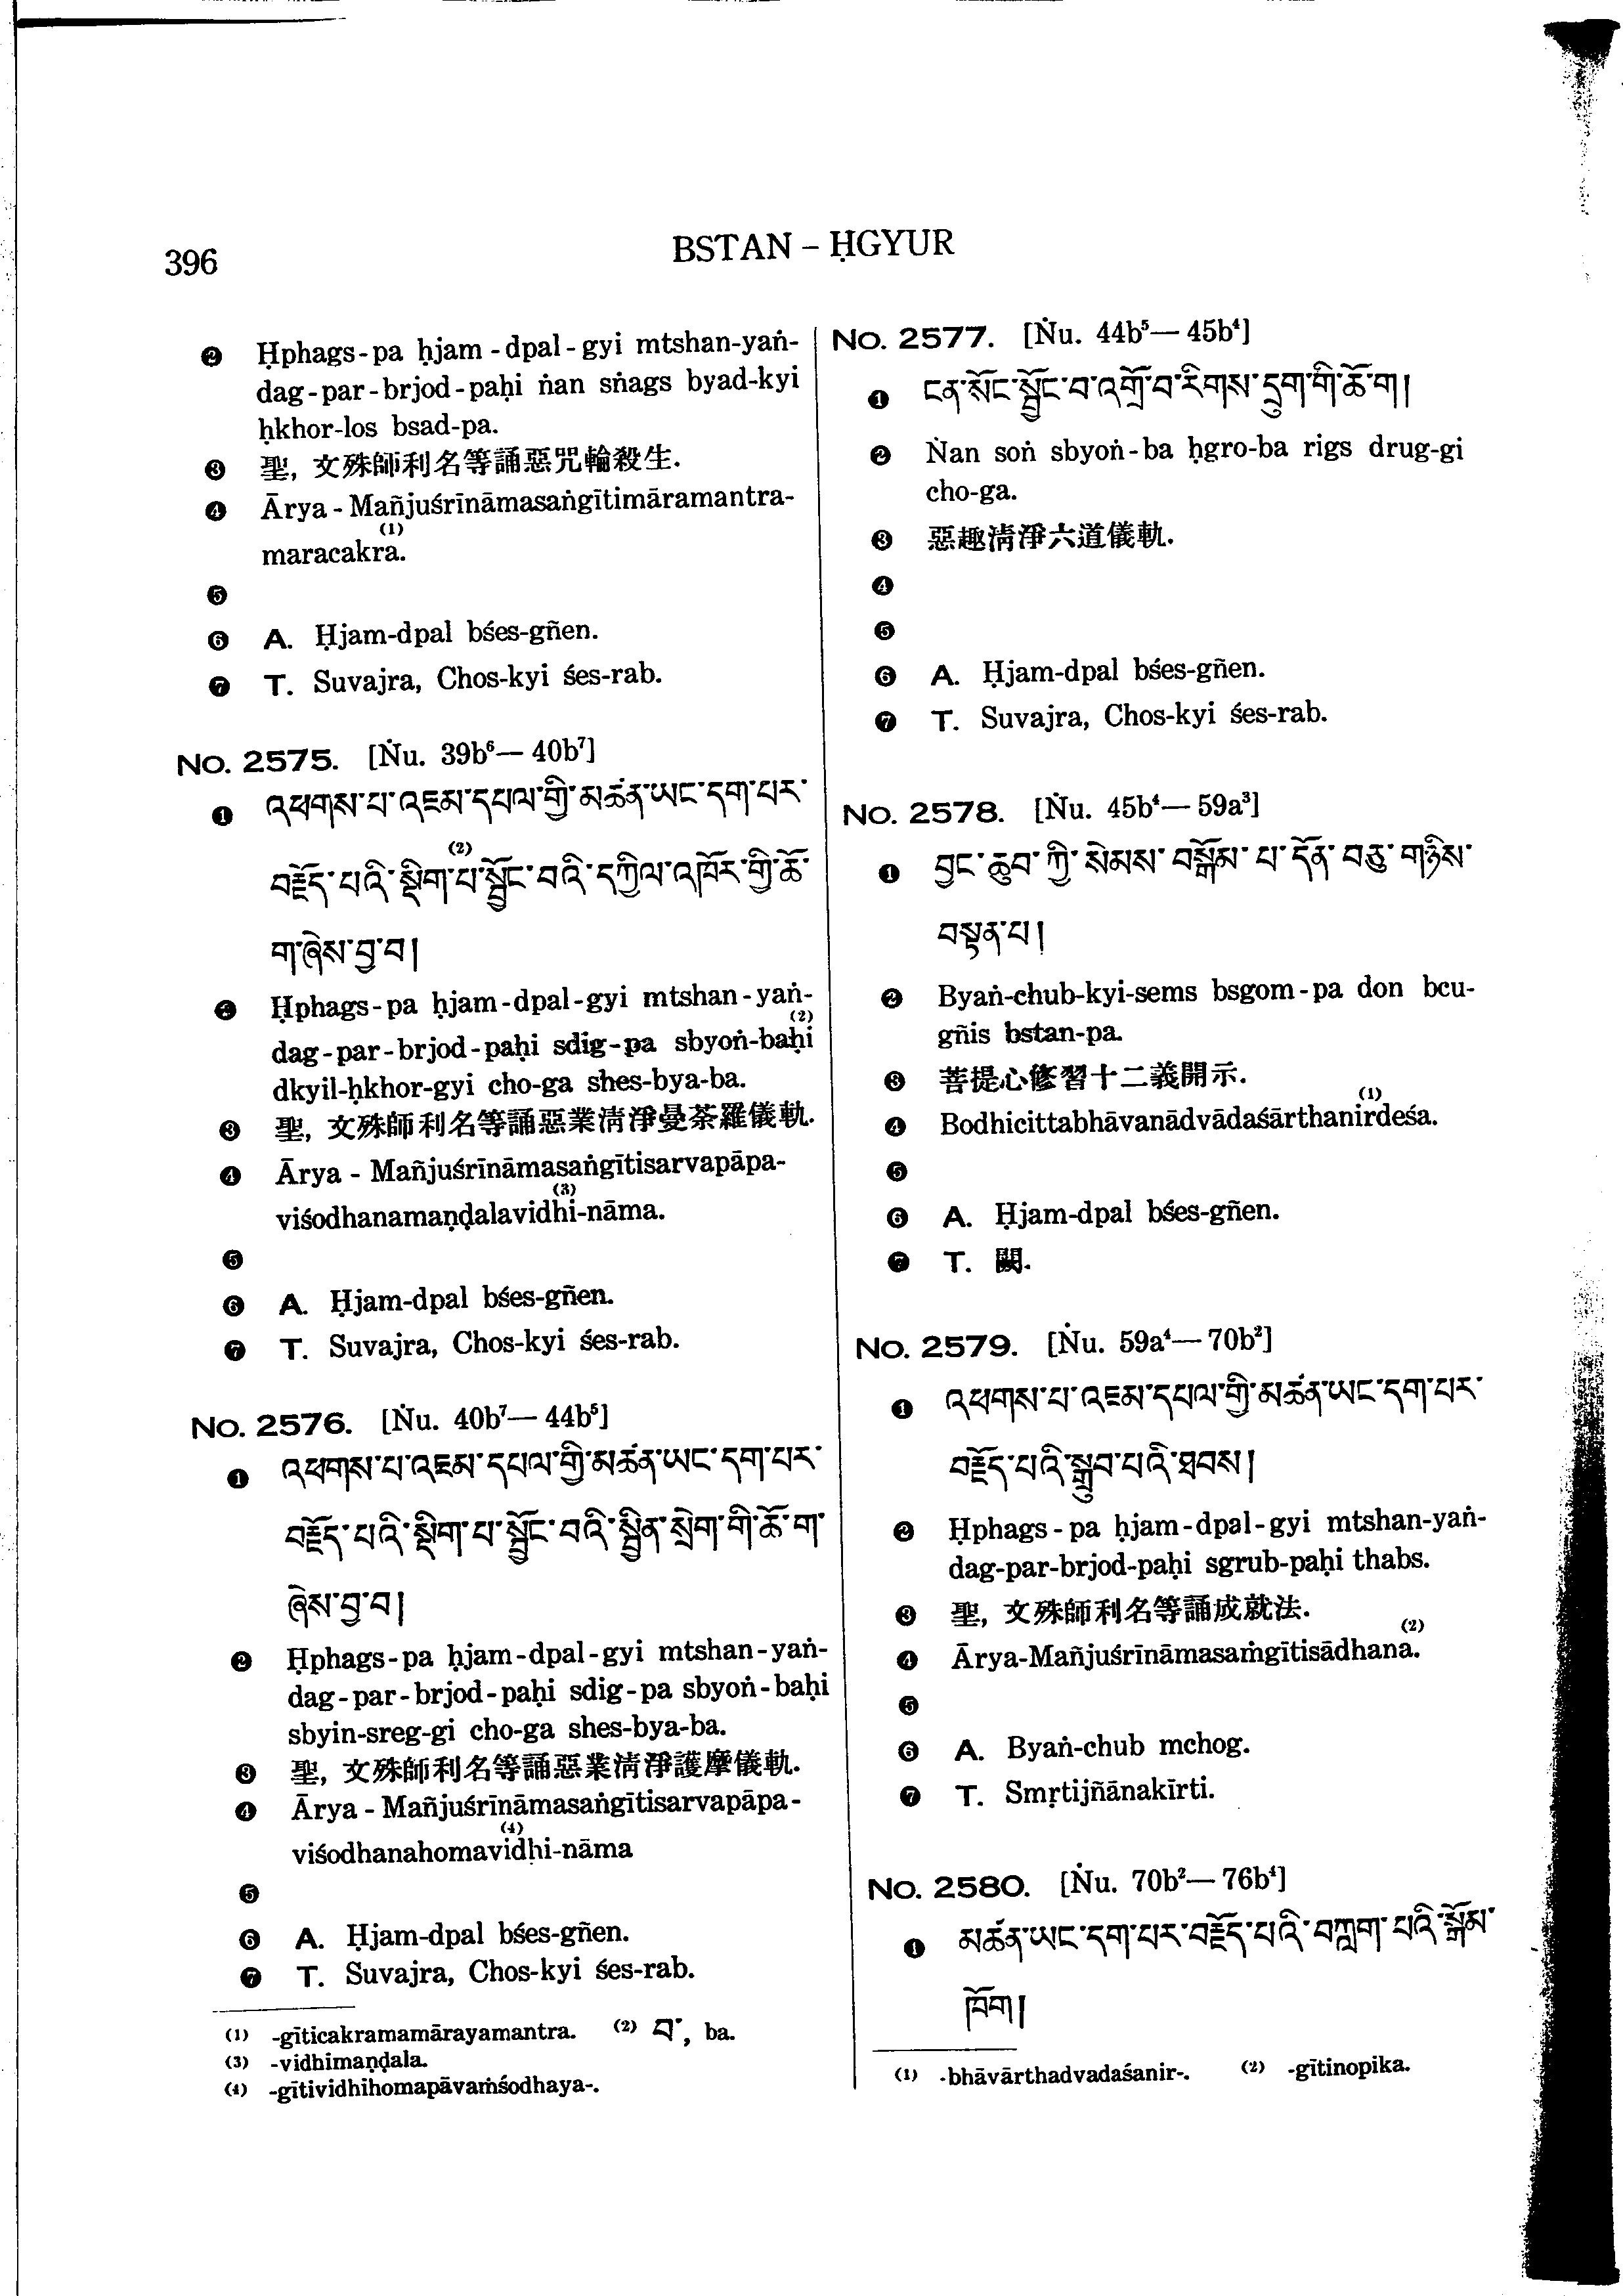 396
BSTAN – ḤGYUR
❷ Ḥphags-pa ḥjam-dpal-gyi mtshan-yaṅ-
dag-par-brjod-paḥi ṅan sṅags byad-kyi
ḥkhor-los bsad-pa.
❸ 聖, 文殊師利名等誦惡咒輪殺生.
❹ Ārya-Mañjuśrīnāmasaṅgītimāramantra-
maracakra.(1)
❺
❻ A. Ḥjam-dpal bśes-gñen.
❼ T. Suvajra, Chos-kyi śes-rab.
No. 2575. [Ṅu. 39b⁶— 40b⁷]
❶ འཕགས་པ་འཇམ་དཔལ་གྱི་མཚན་ཡང་དག་པར་
བརྗོད་པའི་སྡིག་པ་(2)སྦྱོང་བའི་དཀྱིལ་འཁོར་གྱི་ཆོ་
ག་ཞེས་བྱ་བ།
❷ Ḥphags-pa ḥjam-dpal-gyi mtshan-yaṅ-
dag-par-brjod-paḥi sdig-pa sbyoṅ-baḥi(2)
dkyil-ḥkhor-gyi cho-ga shes-bya-ba.
❸ 聖, 文殊師利名等誦惡業淸淨曼荼羅儀軌.
❹ Ārya-Mañjuśrīnāmasaṅgītisarvapāpa-
viśodhanamaṇḍalavidhi-nāma.(3)
❺
❻ A. Ḥjam-dpal bśes-gñen.
❼ T. Suvajra, Chos-kyi śes-rab.
No. 2576. [Ṅu. 40b⁷— 44b⁵]
❶ འཕགས་པ་འཇམ་དཔལ་གྱི་མཚན་ཡང་དག་པར་
བརྗོད་པའི་སྡིག་པ་སྦྱོང་བའི་སྦྱིན་སྲེག་གི་ཆོ་ག་
ཞེས་བྱ་བ།
❷ Ḥphags-pa ḥjam-dpal-gyi mtshan-yaṅ-
dag-par-brjod-paḥi sdig-pa sbyoṅ-baḥi
sbyin-sreg-gi cho-ga shes-bya-ba.
❸ 聖, 文殊師利名等誦惡業淸淨護摩儀軌.
❹ Ārya-Mañjuśrīnāmasaṅgītisarvapāpa-
viśodhanahomavidhi-nāma(4)
❺
❻ A. Ḥjam-dpal bśes-gñen.
❼ T. Suvajra, Chos-kyi śes-rab.
(1) -gīticakramamārayamantra. (2) བ་, ba.
(3) -vidhimaṇḍala.
(4) -gītividhihomapāvaṁśodhaya-.
No. 2577. [Ṅu. 44b⁵— 45b⁴]
❶ ངན་སོང་སྦྱོང་བ་འགྲོ་བ་རིགས་དྲུག་གི་ཆོ་ག།
❷ Ṅan soṅ sbyoṅ-ba ḥgro-ba rigs drug-gi
cho-ga.
❸ 惡趣淸淨六道儀軌.
❹
❺
❻ A. Ḥjam-dpal bśes-gñen.
❼ T. Suvajra, Chos-kyi śes-rab.
No. 2578. [Ṅu. 45b⁴— 59a³]
❶ བྱང་ཆུབ་ཀྱི་སེམས་བསྒོམ་པ་དོན་བཅུ་གཉིས་
བསྟན་པ།
❷ Byaṅ-chub-kyi-sems bsgom-pa don bcu-
gñis bstan-pa.
❸ 菩提心修習十二義開示.
❹ Bodhicittabhāvanādvādaśārthanirdeśa.(1)
❺
❻ A. Ḥjam-dpal bśes-gñen.
❼ T. 闕.
No. 2579. [Ṅu. 59a⁴— 70b²]
❶ འཕགས་པ་འཇམ་དཔལ་གྱི་མཚན་ཡང་དག་པར་
བརྗོད་པའི་སྒྲུབ་པའི་ཐབས།
❷ Ḥphags-pa ḥjam-dpal-gyi mtshan-yaṅ-
dag-par-brjod-paḥi sgrub-paḥi thabs.
❸ 聖, 文殊師利名等誦成就法.
❹ Ārya-Mañjuśrīnāmasaṁgītisādhana.(2)
❺
❻ A. Byaṅ-chub mchog.
❼ T. Smṛtijñānakīrti.
No. 2580. [Ṅu. 70b²— 76b⁴]
❶ མཚན་ཡང་དག་པར་བརྗོད་པའི་བཀླག་པའི་སྒོམ་
ཁོག།
(1) -bhāvārthadvadaśanir-. (2) -gītinopika.